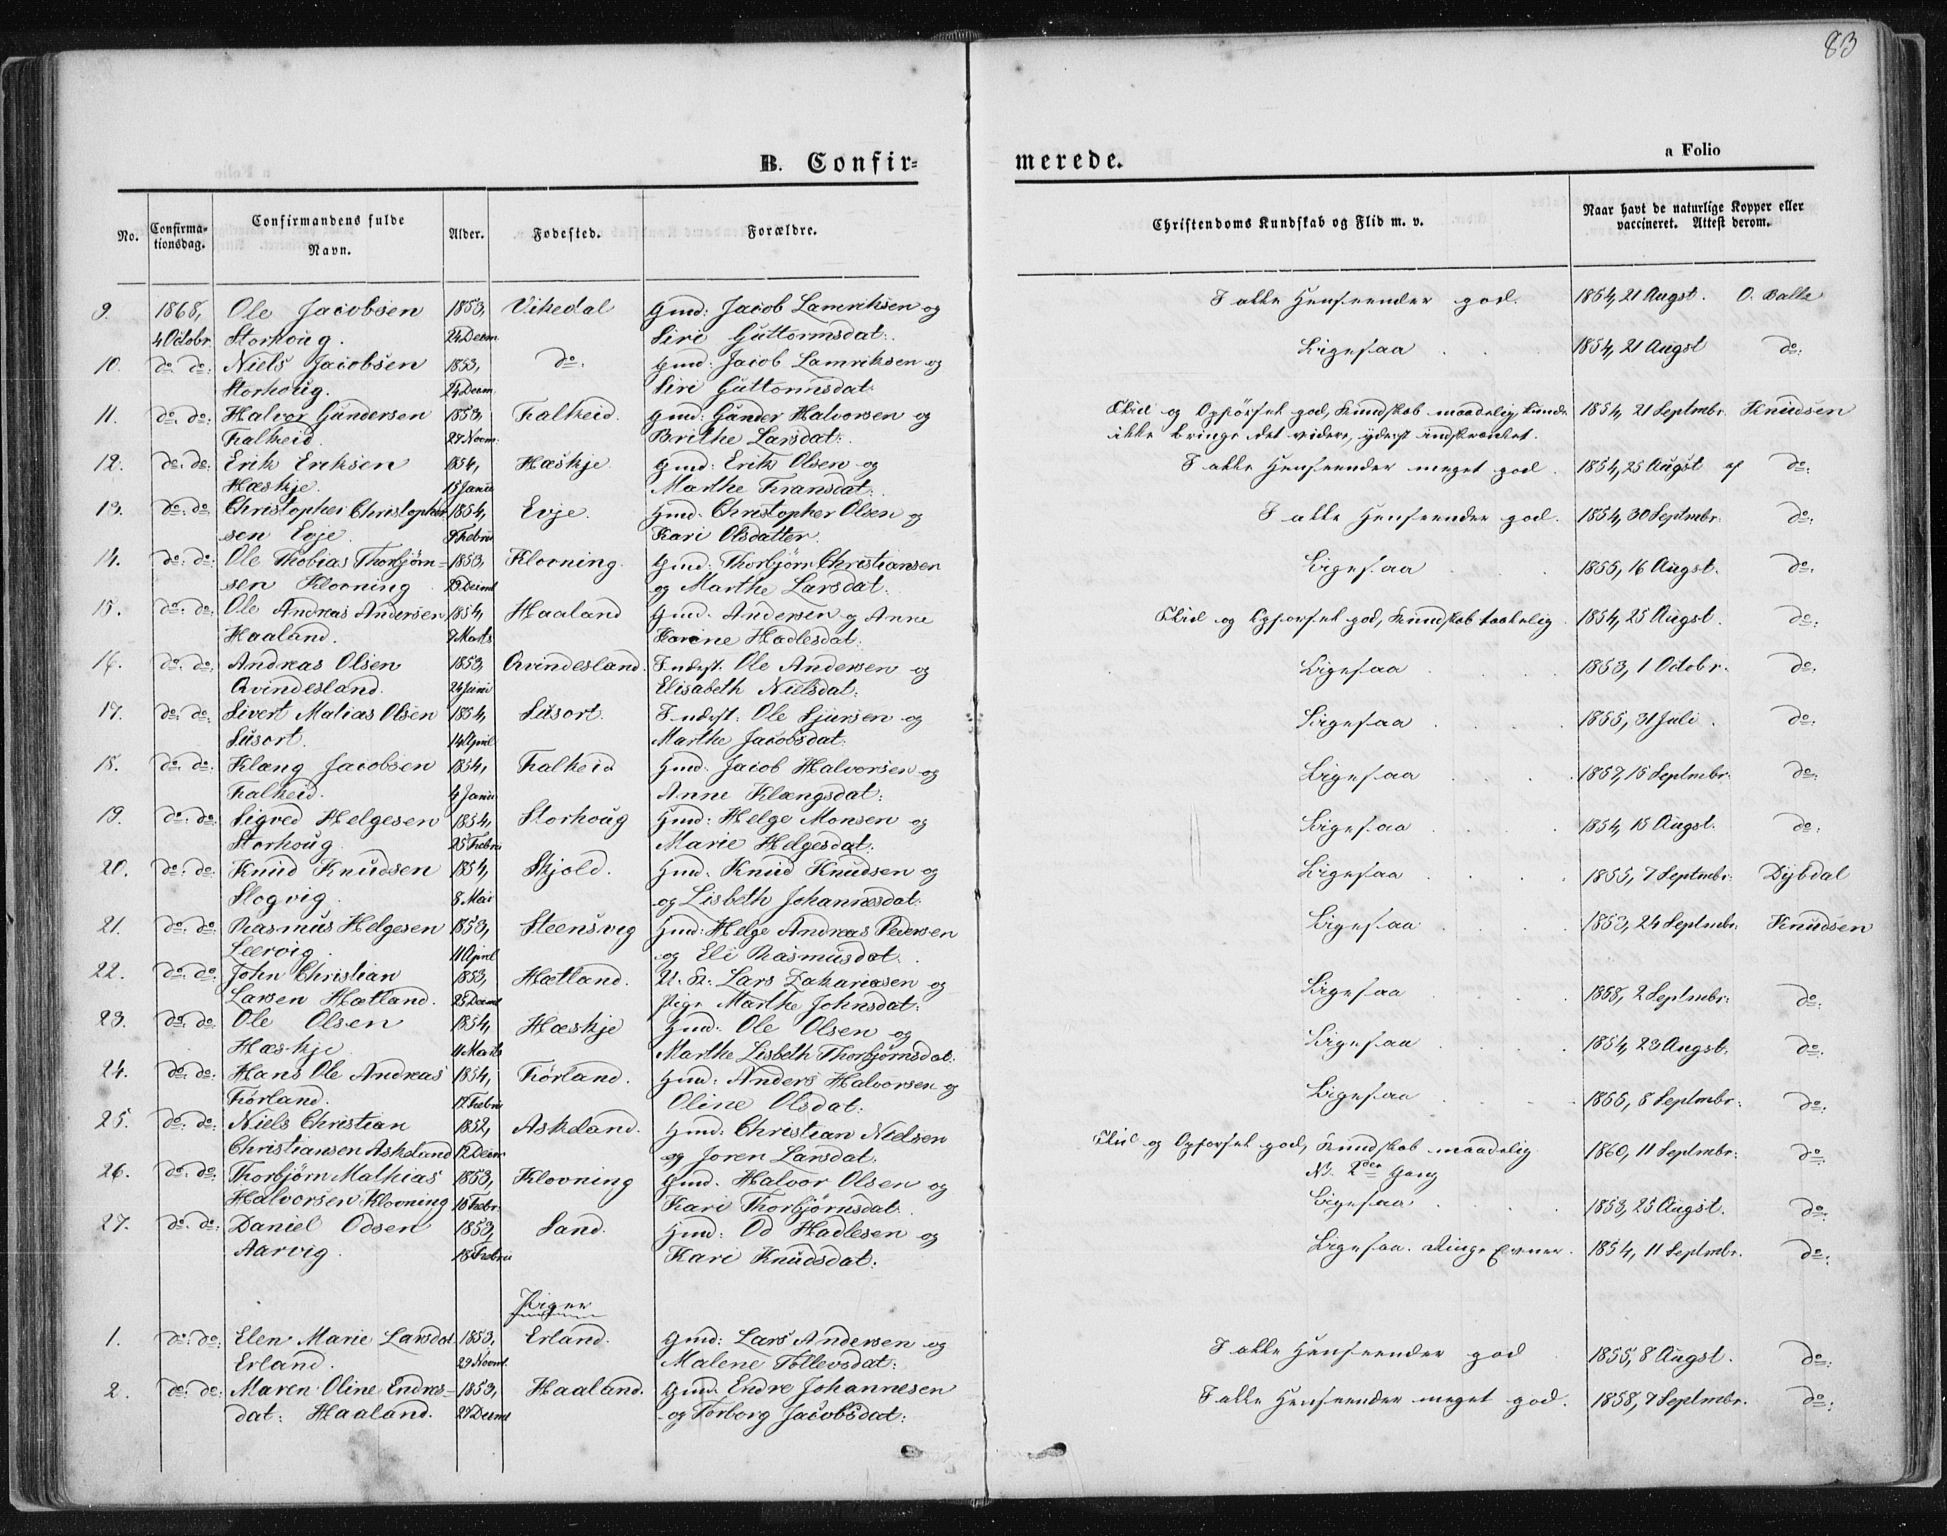 83
B. Confir=
merede.
a Folio
No.
Confirma-
tionsdag.
Confirmandens fulde
Navn.
Alder.
Fødested.
Forældre.
Christendoms Kundskab og Flid m. v.
Naar havt de naturlige Kopper eller
vaccineret. Attest derom.
9. 1868, Ole Jacobsen 1853, Vikedal Gmd: Jacob Lamriksen og I alle Henseender god. 1854, 21 Augst. O. Balle
4 Octobr Storhoug. 24 Decm Siri Guttormsdat:
10. do. do: Niels Jacobsen 1853, do. Gmd: Jacob Lamriksen og Ligesaa 1854, 21 Augst do:
Storhoug. 24 Decm Siri Guttormsdat:
11. do. do: Halvor Gundersen 1853, Falkeid. Gmd: Gunder Halvorsen og Flid og Opførsel god, Kundskab maadelig, kunde 1854, 21 Septmbr. Knudsen
Falkeid. 27 Novm. Brithe Larsdat: ikke bringe det videre, yderst indskrænket.
12. do. do: Erik Eriksen 1854, Hæskje. Gmd: Erik Olsen og I alle Henseender meget god. 1854, 25 Augst af do:
Hæskje. 15 Janu Marthe Fransdat:
13. do. do: Christopher Christopher 1854, Evje. Gmd: Christopher Olsen og I alle Henseender god. 1854, 30 Septmbr. do:
sen Evje. 9 Febru Kari Olsdatter.
14. do. do: Ole Thobias Thorbjørn- 1853, Klovning. Gmd: Thorbjørn Christiansen Ligesaa 1855, 16 Augst. do:
sen Klovning 29 Decmt og Marthe Larsdat:
15. do. do: Ole Andreas Andersen 1854, Haaland Gmd: Andersen og Anne Flid og Opførsel god, Kundskab taalelig 1854, 25 Augst. do:
Haaland. 7 Marts Karene Hadlesdat:
16. do. do: Andreas Olsen 1853, Qvindesland. Inderst: Ole Andersen og Ligesaa 1853, 1 Octobr. do:
Qvindesland. 24 Juni Elisabeth Nielsdat:
17. do. do: Sivert Matias Olsen 1854, Susort. Inderst: Ole Sjursen og Ligesaa 1855, 31 Juli. do:
Susort. 14 April Marthe Jacobsdat:
18. do. do: Klæng Jacobsen 1854, Falkeid Gmd: Jacob Halvorsen og Ligesaa 1857, 15 Septmbr. do:
Falkeid. 4 Janu Anne Klængsdat:
19. do. do: Sigved Helgesen 1854, Storhoug Gmd: Helge Monsen og Ligesaa 1854, 15 Augst. do:
Storhoug. 25 Febru Marie Helgesdat:
20. do. do: Knud Knudsen 1854, Skjold. Gmd: Knud Knudsen og Ligesaa 1855, 7 Septmbr. Dybdal
Slogvig. 8 Mai og Lisbeth Johannesdat:
21. do. do: Rasmus Helgesen 1853, Steensvig Gmd: Helge Andreas Pedersen Ligesaa 1853, 24 Septmbr: Knudsen
Leervig. 11 April og Eli Rasmusdat:
22. do. do: John Christian 1853, Hætland. U. K: Lars Zakariasen og Ligesaa 1858, 2 Septmbr: do:
Larsen Hætland. 25 Decmt Pige Marthe Johnsdat:
23. do. do: Ole Olsen 1854, Hæskje Gmd: Ole Olsen og Ligesaa 1854, 23 Augst. do:
Hæskje. 11 Marts Marthe Lisbeth Thorbjørnsdat:
24. do. do: Hans Ole Andreas 1854, Førland. Gmd: Anders Halvorsen og Ligesaa 1855, 8 Septmbr: do:
Førland. 17 Febru Oline Olsdat:
25. do. do: Niels Christian 1852, Askeland. Gmd: Christian Nielsen Flid og Opførsel god, Kundskab maadelig. 1860, 11 Septmbr: do:
Christiansen Askeland 12 Decm og Joren Larsdat: NB. 2den Gang
26. do. do: Thorbjørn Mathias 1853, Klovning Gmd: Halvor Olsen og Ligesaa 1853, 25 Augst. do:
Halvorsen Klovning 18 Febr. Kari Thorbjørnsdat:
27. do. do: Daniel Odsen 1853, Sand. Gmd: Od Hadlesen og Ligesaa. Ringe Evner. 1854, 11 Septmbr. do:
Aarvig. 18 Febru Kari Knudsdat:
Piger
1. do. do: Elen Marie Larsdat. 1853, Erland. Gmd: Lars Andersen og I alle Henseender god 1855, 8 Augst. do:
Erland. 29 Novmt. Malene Tollevsdat:
2. do. do: Maren Oline Endres- 1853, Haaland. Gmd. Endre Johannesen I alle Henseender meget god. 1858, 7 Septmbr. do:
dat: Haaland. 27 Decmt og Torborg Jacobsdat: